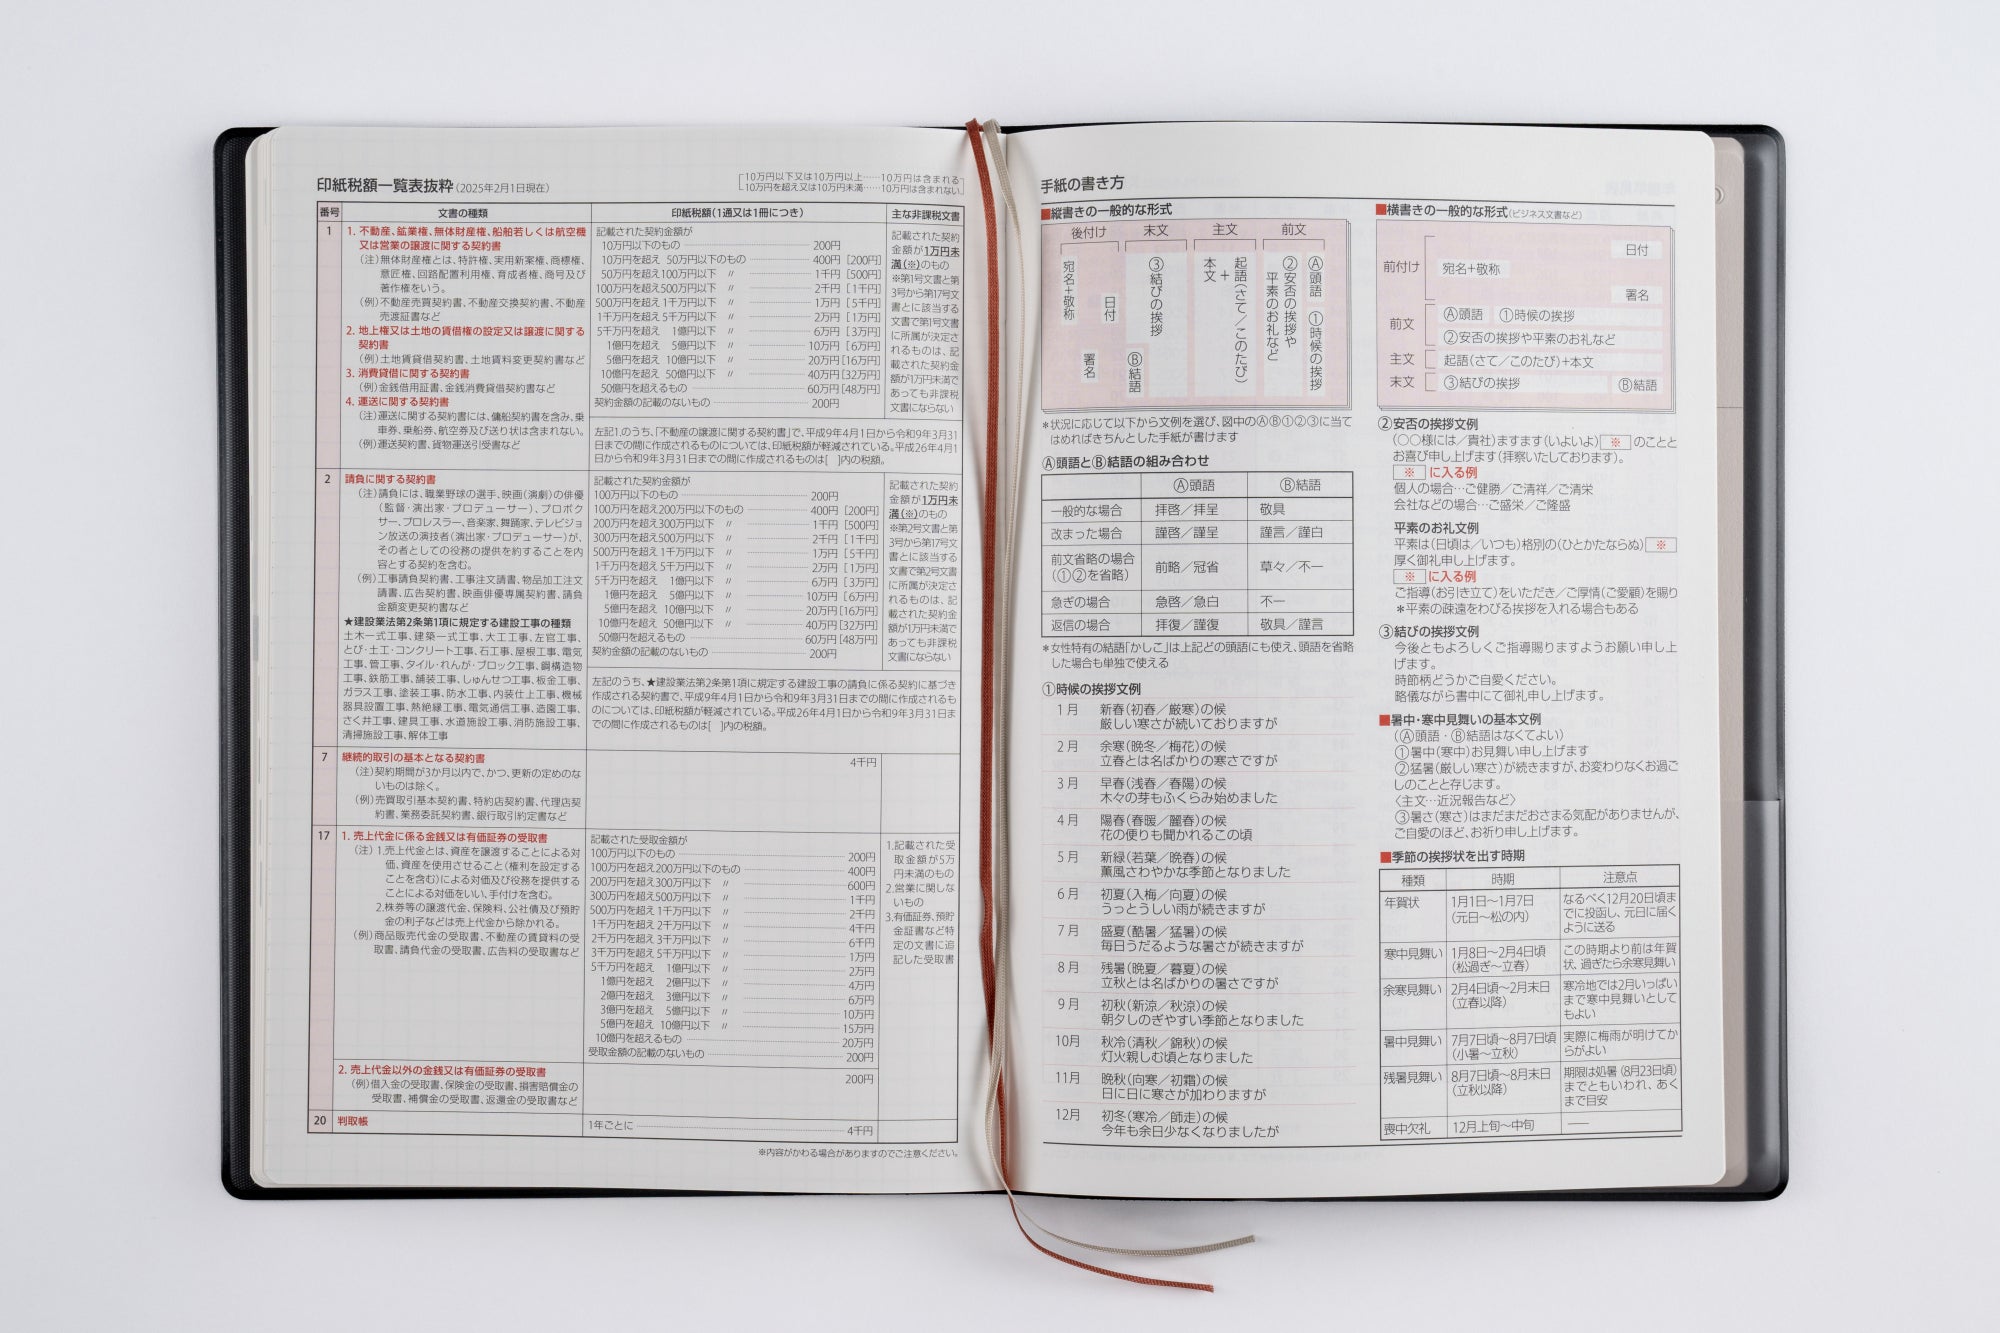 印紙税額一覧表抜粋(2025年2月1日現在)
10万円以下又は10万円以上……10万円は含まれる
10万円を超え又は10万円未満……10万円は含まれない
番号 文書の種類 印紙税額(1通又は1冊につき) 主な非課税文書
1
1. 不動産、鉱業権、無体財産権、船舶若しくは航空機
又は営業の譲渡に関する契約書
(注)無体財産権とは、特許権、実用新案権、商標権、
意匠権、回路配置利用権、育成者権、商号及び
著作権をいう。
(例)不動産売買契約書、不動産交換契約書、不動産
売渡証書など
2. 地上権又は土地の賃借権の設定又は譲渡に関する
契約書
(例)土地賃貸借契約書、土地賃料変更契約書など
3. 消費貸借に関する契約書
(例)金銭借用証書、金銭消費貸借契約書など
4. 運送に関する契約書
(注)運送に関する契約書には、傭船契約書を含み、乗
車券、乗船券、航空券及び送り状は含まれない。
(例)運送契約書、貨物運送引受書など
記載された契約金額が
10万円以下のもの 200円
10万円を超え 50万円以下のもの 400円 [200円]
50万円を超え100万円以下 〃 1千円 [500円]
100万円を超え500万円以下 〃 2千円 [1千円]
500万円を超え1千万円以下 〃 1万円 [5千円]
1千万円を超え5千万円以下 〃 2万円 [1万円]
5千万円を超え 1億円以下 〃 6万円 [3万円]
1億円を超え 5億円以下 〃 10万円 [6万円]
5億円を超え 10億円以下 〃 20万円[16万円]
10億円を超え 50億円以下 〃 40万円[32万円]
50億円を超えるもの 60万円[48万円]
契約金額の記載のないもの 200円
左記1.のうち、「不動産の譲渡に関する契約書」で、平成9年4月1日から令和9年3月31
日までの間に作成されるものについては、印紙税額が軽減されている。平成26年4月1
日から令和9年3月31日までの間に作成されるものは[ ]内の税額。
記載された契約
金額が1万円未
満(※)のもの
※第1号文書と第
3号から第17号文
書とに該当する
文書で第1号文書
に所属が決定さ
れるものは、記
載された契約金
額が1万円未満で
あっても非課税
文書にならない
2
請負に関する契約書
(注)請負には、職業野球の選手、映画(演劇)の俳優
(監督・演出家・プロデューサー)、プロボク
サー、プロレスラー、音楽家、舞踊家、テレビジョ
ン放送の演技者(演出家・プロデューサー)が、
その者としての役務の提供を約することを内
容とする契約を含む。
(例)工事請負契約書、工事注文請書、物品加工注文
請書、広告契約書、映画俳優専属契約書、請負
金額変更契約書など
★建設業法第2条第1項に規定する建設工事の種類
土木一式工事、建築一式工事、大工工事、左官工事、
とび・土工・コンクリート工事、石工事、屋根工事、電気
工事、管工事、タイル・れんが・ブロック工事、鋼構造物
工事、鉄筋工事、舗装工事、しゅんせつ工事、板金工事、
ガラス工事、塗装工事、防水工事、内装仕上工事、機械
器具設置工事、熱絶縁工事、電気通信工事、造園工事、
さく井工事、建具工事、水道施設工事、消防施設工事、
清掃施設工事、解体工事
記載された契約金額が
100万円以下のもの 200円
100万円を超え200万円以下のもの 400円 [200円]
200万円を超え300万円以下 〃 1千円 [500円]
300万円を超え500万円以下 〃 2千円 [1千円]
500万円を超え1千万円以下 〃 1万円 [5千円]
1千万円を超え5千万円以下 〃 2万円 [1万円]
5千万円を超え 1億円以下 〃 6万円 [3万円]
1億円を超え 5億円以下 〃 10万円 [6万円]
5億円を超え 10億円以下 〃 20万円[16万円]
10億円を超え 50億円以下 〃 40万円[32万円]
50億円を超えるもの 60万円[48万円]
契約金額の記載のないもの 200円
左記のうち、★建設業法第2条第1項に規定する建設工事の請負に係る契約に基づき
作成される契約書で、平成9年4月1日から令和9年3月31日までの間に作成されるも
のについては、印紙税額が軽減されている。平成26年4月1日から令和9年3月31日ま
での間に作成されるものは[ ]内の税額。
記載された契約
金額が1万円未
満(※)のもの
※第2号文書と第
3号から第17号文
書とに該当する
文書で第2号文書
に所属が決定さ
れるものは、記
載された契約金
額が1万円未満で
あっても非課税
文書にならない
7
継続的取引の基本となる契約書
(注)契約期間が3か月以内で、かつ、更新の定めのな
いものは除く。
(例)売買取引基本契約書、特約店契約書、代理店契
約書、業務委託契約書、銀行取引約定書など
4千円
17
1. 売上代金に係る金銭又は有価証券の受取書
(注) 1.売上代金とは、資産を譲渡することによる対
価、資産を使用させること(権利を設定する
ことを含む)による対価及び役務を提供する
ことによる対価をいい、手付けを含む。
2.株券等の譲渡代金、保険料、公社債及び預貯
金の利子などは売上代金から除かれる。
(例)商品販売代金の受取書、不動産の賃貸料の受
取書、請負代金の受取書、広告料の受取書など
記載された受取金額が
100万円以下のもの 200円
100万円を超え200万円以下のもの 400円
200万円を超え300万円以下 〃 600円
300万円を超え500万円以下 〃 1千円
500万円を超え1千万円以下 〃 2千円
1千万円を超え2千万円以下 〃 4千円
2千万円を超え3千万円以下 〃 6千円
3千万円を超え5千万円以下 〃 1万円
5千万円を超え 1億円以下 〃 2万円
1億円を超え 2億円以下 〃 4万円
2億円を超え 3億円以下 〃 6万円
3億円を超え 5億円以下 〃 10万円
5億円を超え 10億円以下 〃 15万円
10億円を超えるもの 20万円
受取金額の記載のないもの 200円
1.記載された受
取金額が5万
円未満のもの
2.営業に関しな
いもの
3.有価証券、預貯
金証書など特
定の文書に追
記した受取書
2. 売上代金以外の金銭又は有価証券の受取書
(例)借入金の受取書、保険金の受取書、損害賠償金の
受取書、補償金の受取書、返還金の受取書など
200円
20 判取帳 1年ごとに 4千円
※内容がかわる場合がありますのでご注意ください。
手紙の書き方
■縦書きの一般的な形式
後付け 末文 主文 前文
Ⓐ頭語 ①時候の挨拶
②安否の挨拶や
平素のお礼など
起語(さて/このたび)
+
本文
③結びの挨拶
Ⓑ結語
日付
署名
宛名+敬称
*状況に応じて以下から文例を選び、図中のⒶⒷ①②③に当て
はめればきちんとした手紙が書けます
Ⓐ頭語とⒷ結語の組み合わせ
Ⓐ頭語 Ⓑ結語
一般的な場合 拝啓/拝呈 敬具
改まった場合 謹啓/謹呈 謹言/謹白
前文省略の場合
(①②を省略) 前略/冠省 草々/不一
急ぎの場合 急啓/急白 不一
返信の場合 拝復/謹復 敬具/謹言
*女性特有の結語「かしこ」は上記どの頭語にも使え、頭語を省略
した場合も単独で使える
①時候の挨拶文例
1月 新春(初春/厳寒)の候
厳しい寒さが続いておりますが
2月 余寒(晩冬/梅花)の候
立春とは名ばかりの寒さですが
3月 早春(浅春/春陽)の候
木々の芽もふくらみ始めました
4月 陽春(春暖/麗春)の候
花の便りも聞かれるこの頃
5月 新緑(若葉/晩春)の候
薫風さわやかな季節となりました
6月 初夏(入梅/向夏)の候
うっとうしい雨が続きますが
7月 盛夏(酷暑/猛暑)の候
毎日うだるような暑さが続きますが
8月 残暑(晩夏/暮夏)の候
立秋とは名ばかりの暑さですが
9月 初秋(新涼/秋涼)の候
朝夕しのぎやすい季節となりました
10月 秋冷(清秋/錦秋)の候
灯火親しむ頃となりました
11月 晩秋(向寒/初霜)の候
日に日に寒さが加わりますが
12月 初冬(寒冷/師走)の候
今年も余日少なくなりましたが
■横書きの一般的な形式(ビジネス文書など)
日付
前付け 宛名+敬称
署名
前文 Ⓐ頭語 ①時候の挨拶
②安否の挨拶や平素のお礼など
主文 起語(さて/このたび)+本文
末文 ③結びの挨拶 Ⓑ結語
②安否の挨拶文例
(○○様には/貴社)ますます(いよいよ) ※ のことと
お喜び申し上げます(拝察いたしております)。
※ に入る例
個人の場合…ご健勝/ご清祥/ご清栄
会社などの場合…ご盛栄/ご隆盛
平素のお礼文例
平素は(日頃は/いつも)格別の(ひとかたならぬ) ※
厚く御礼申し上げます。
※ に入る例
ご指導(お引き立て)をいただき/ご厚情(ご愛顧)を賜り
*平素の疎遠をわびる挨拶を入れる場合もある
③結びの挨拶文例
今後ともよろしくご指導賜りますようお願い申し上
げます。
時節柄どうかご自愛ください。
略儀ながら書中にて御礼申し上げます。
■暑中・寒中見舞いの基本文例
(Ⓐ頭語・Ⓑ結語はなくてよい)
①暑中(寒中)お見舞い申し上げます
②猛暑(厳しい寒さ)が続きますが、お変わりなくお過ご
しのことと存じます。
〈主文…近況報告など〉
③暑さ(寒さ)はまだまだおさまる気配がありませんが、
ご自愛のほど、お祈り申し上げます。
■季節の挨拶状を出す時期
種類 時期 注意点
年賀状 1月1日〜1月7日
(元日〜松の内)
なるべく12月20日頃ま
でに投函し、元日に届く
ように送る
寒中見舞い 1月8日〜2月4日頃
(松過ぎ〜立春)
この時期より前は年賀
状、過ぎたら余寒見舞い
余寒見舞い 2月4日頃〜2月末日
(立春以降)
寒冷地では2月いっぱい
まで寒中見舞いとして
もよい
暑中見舞い 7月7日頃〜8月7日頃
(小暑〜立秋)
実際に梅雨が明けてか
らがよい
残暑見舞い 8月7日頃〜8月末日
(立秋以降)
期限は処暑(8月23日頃)
までともいわれ、あく
まで目安
喪中欠礼 12月上旬〜中旬 ——